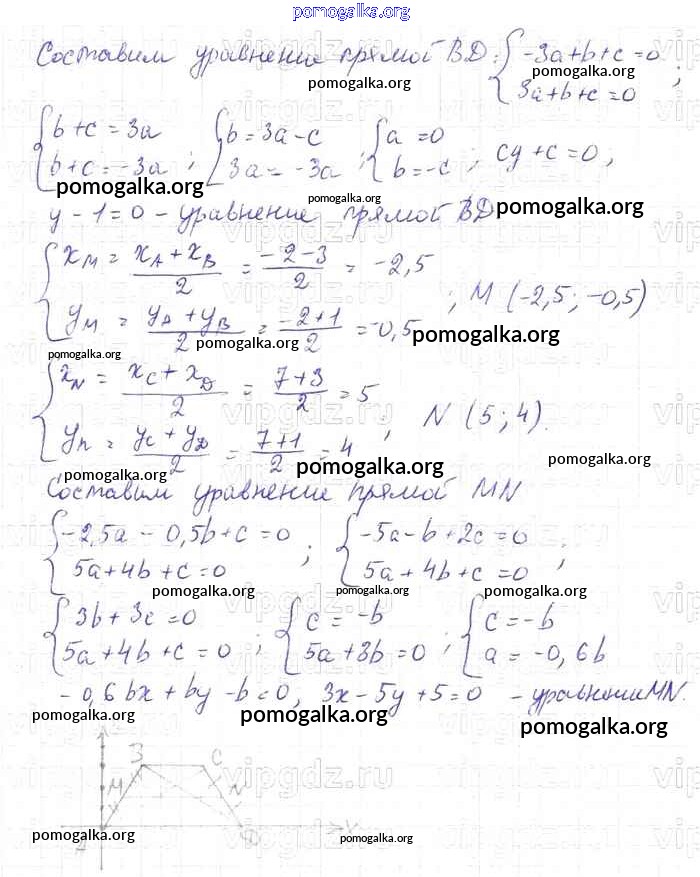 pomogalka.org
Составим уравнение прямой BD: { -3a+b+c=0
pomogalka.org pomogalka.org
3a+b+c=0 ;
{ b+c=3a { b=3a-c { a=0
b+c=-3a ; 3a=-3a ; b=-c ; cy+c=0,
pomogalka.org
y-1=0 - уравнение прямой BD pomogalka.org
{ x_M = (x_A+x_B)/2 = (-2-3)/2 = -2,5
y_M = (y_A+y_B)/2 = (-2+1)/2 = -0,5 ; M (-2,5; -0,5)
pomogalka.org pomogalka.org
pomogalka.org
{ x_N = (x_C+x_D)/2 = (7+3)/2 = 5
y_n = (y_C+y_D)/2 = (7+1)/2 = 4 ; N (5; 4).
pomogalka.org pomogalka.org pomogalka.org
Составим уравнение прямой MN
{ -2,5a-0,5b+c=0 { -5a-b+2c=0
5a+4b+c=0 ; 5a+4b+c=0 ;
pomogalka.org pomogalka.org pomogalka.org
{ 3b+3c=0 { c=-b { c=-b
5a+4b+c=0 ; 5a+3b=0 ; a=-0,6b
pomogalka.org pomogalka.org pomogalka.org
-0,6bx+by-b=0, 3x-5y+5=0 - уравнение MN.
pomogalka.org pomogalka.org pomogalka.org
B C
M N
A D x
pomogalka.org pomogalka.org pomogalka.org
vipgdz.ru